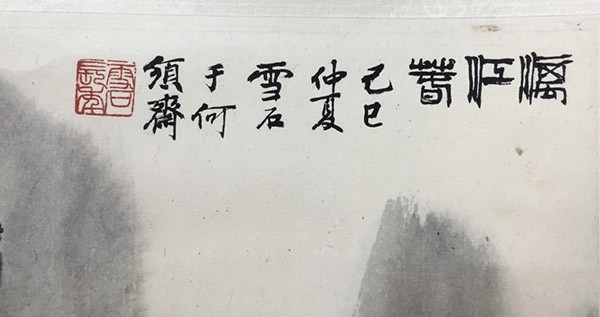 漓江春
己巳
仲夏
雪石
于何
須齋
雪石